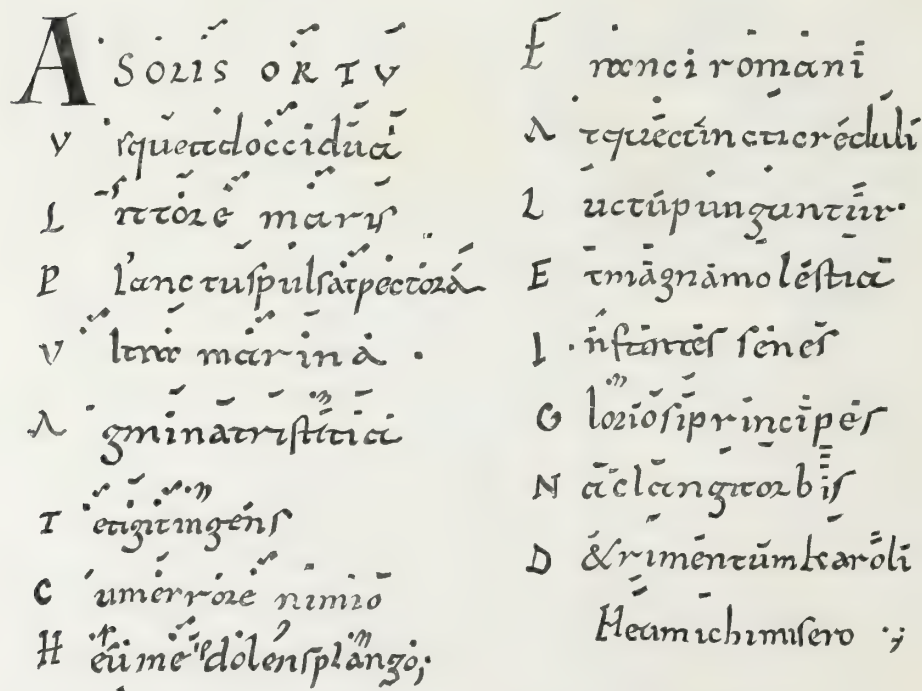 A SOLIS ORTV
V sque ad occidua
L ittore maris
P lanctus pulsat pectora
V ltra marina
A gmina tristitia
T etigit ingens
C um errore nimio
H eu me dolens plango;
F ranci romani
A tque cuncti creduli
L uctu punguntur.
E t magna molestia
I nfantes senes
G loriosi principes
N a clangit orbis
D &rimentum karoli
Heu michi misero ·;